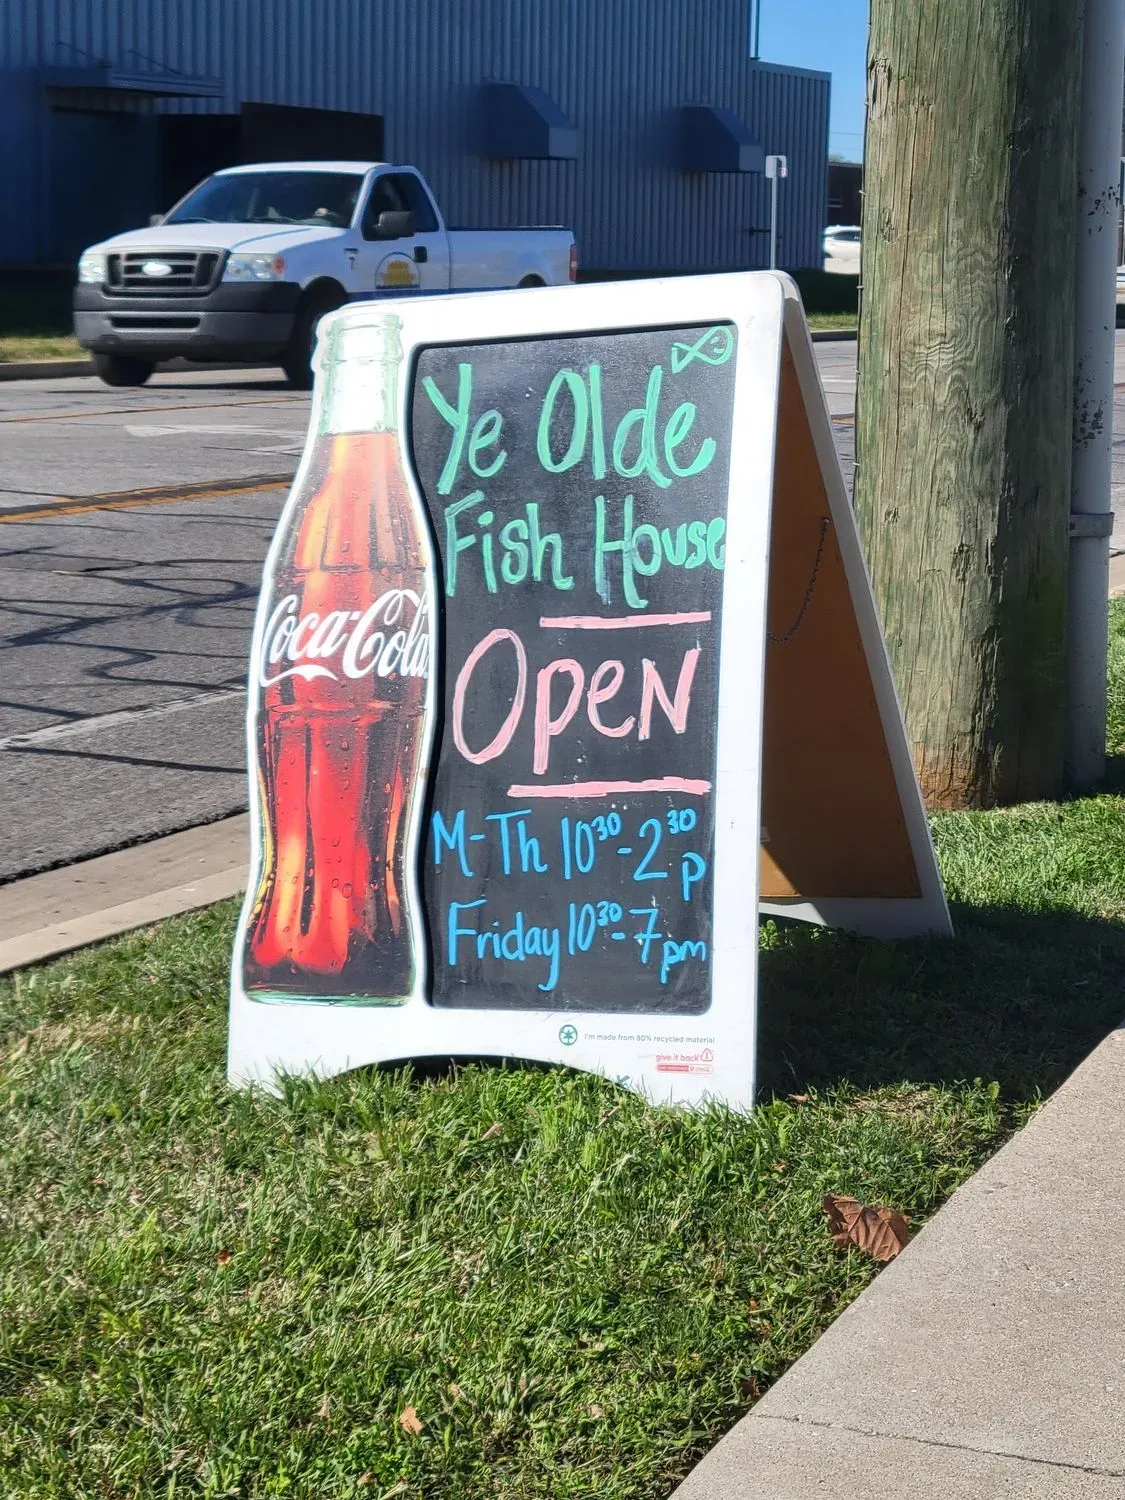 Ye Olde
Fish House
Open
M-Th 10³⁰-2³⁰p
Friday 10³⁰-7pm
Coca-Cola
I'm made from 80% recycled material
give it back